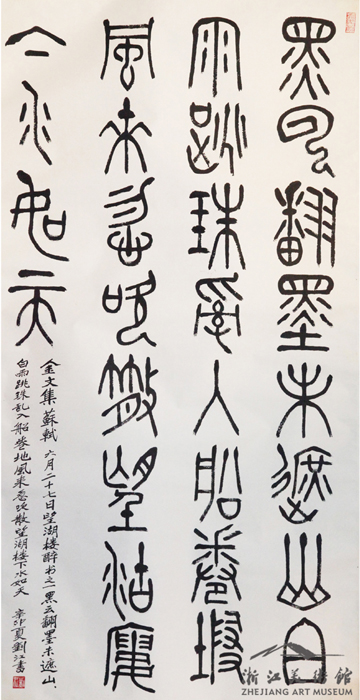 黑云翻墨未遮山白
雨跳珠亂入船卷地
風来忽吹散望湖樓
下水如天
金文集蘇軾六月二十七日望湖楼醉书之一黑云翻墨未遮山、
白雨跳珠乱入船卷地風来忽吹散望湖楼下水如天 辛卯夏劉江書
浙江美術館
ZHEJIANG ART MUSEUM